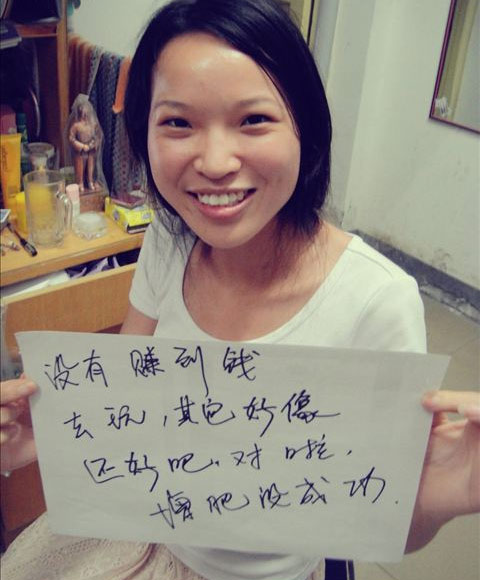 没有赚到钱
去玩，其它好像
还好吧。对啦，
增肥没成功.